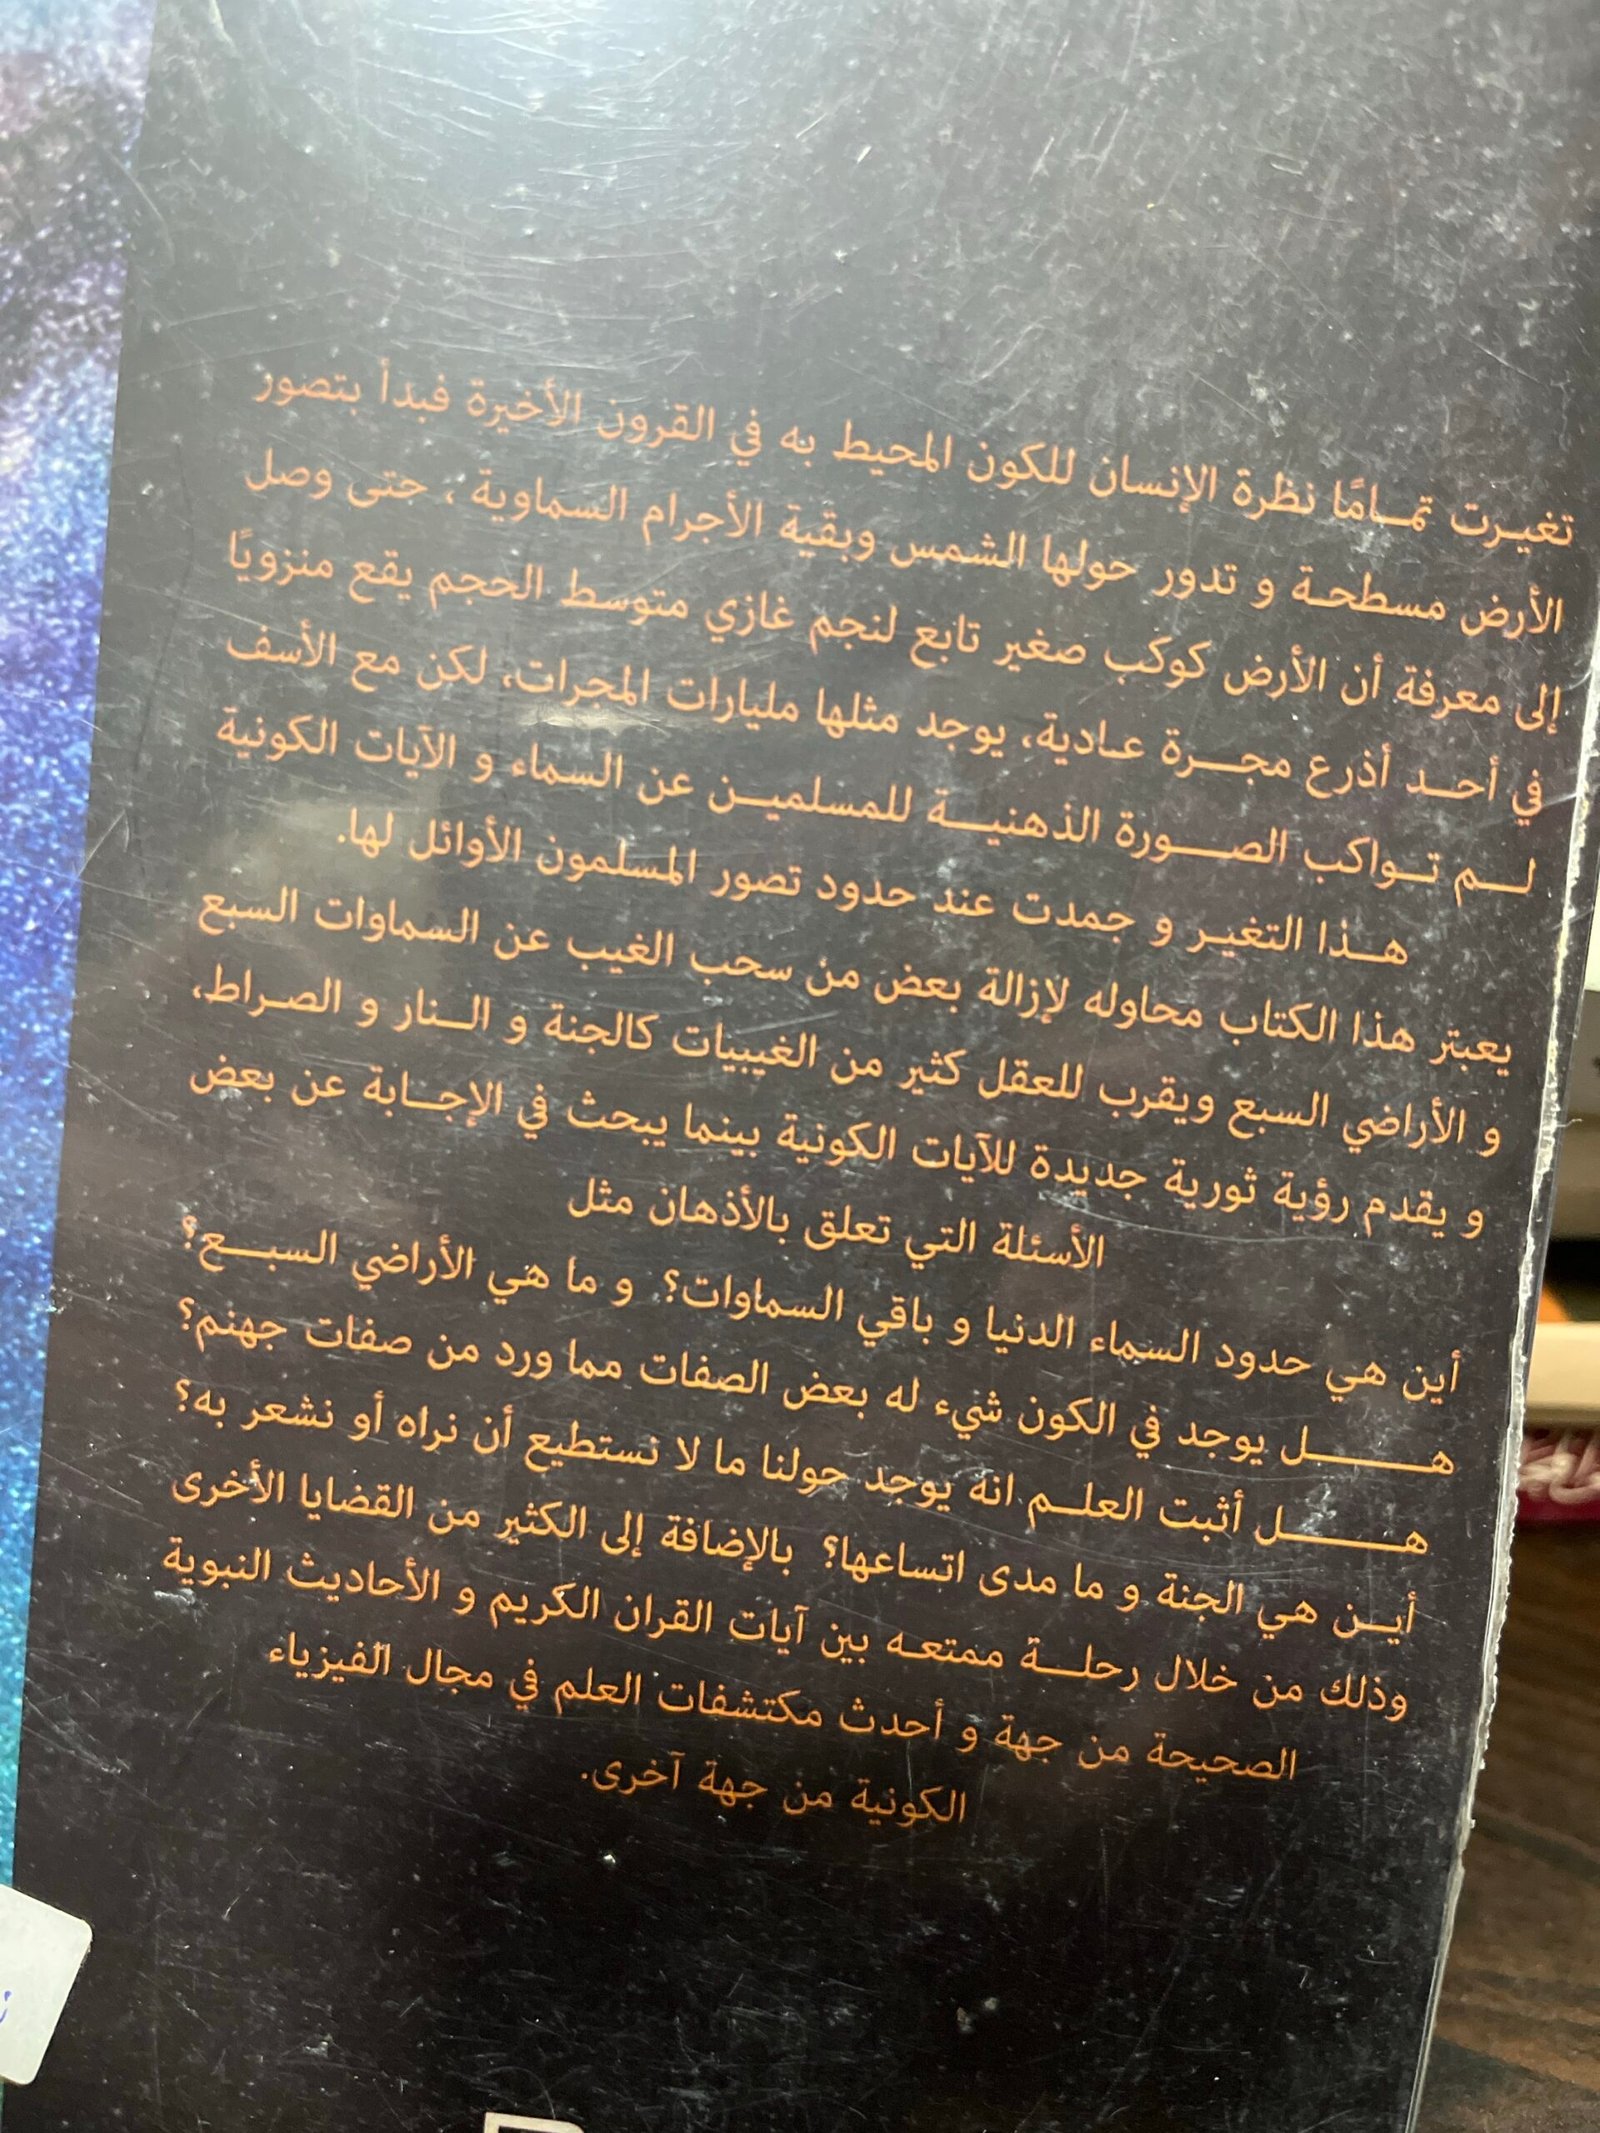 تغيرت تمامًا نظرة الإنسان للكون المحيط به في القرون الأخيرة فبدأ بتصور
الأرض مسطحة و تدور حولها الشمس وبقية الأجرام السماوية ، حتى وصل
إلى معرفة أن الأرض كوكب صغير تابع لنجم غازي متوسط الحجم يقع منزويًا
في أحد أذرع مجرة عادية، يوجد مثلها مليارات المجرات، لكن مع الأسف
لم تواكب الصورة الذهنية للمسلمين عن السماء و الآيات الكونية
هذا التغير و جمدت عند حدود تصور المسلمون الأوائل لها.
يعبتر هذا الكتاب محاوله لإزالة بعض من سحب الغيب عن السماوات السبع
و الأراضي السبع ويقرب للعقل كثير من الغيبيات كالجنة و النار و الصراط،
و يقدم رؤية ثورية جديدة للآيات الكونية بينما يبحث في الإجابة عن بعض
الأسئلة التي تعلق بالأذهان مثل
أين هي حدود السماء الدنيا و باقي السماوات؟ و ما هي الأراضي السبع؟
هل يوجد في الكون شيء له بعض الصفات مما ورد من صفات جهنم؟
هل أثبت العلم انه يوجد حولنا ما لا نستطيع أن نراه أو نشعر به؟
أين هي الجنة و ما مدى اتساعها؟ بالإضافة إلى الكثير من القضايا الأخرى
وذلك من خلال رحلة ممتعه بين آيات القران الكريم و الأحاديث النبوية
الصحيحة من جهة و أحدث مكتشفات العلم في مجال الفيزياء
الكونية من جهة آخرى.